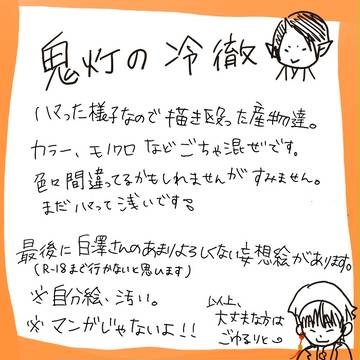 鬼灯の冷徹
ハマった様子なので描き殴った産物達。
カラー、モノクロなどごちゃ混ぜです。
色々間違ってるかもしれませんがすみません。
まだハマって浅いです
最後に白澤さんのあまりよろしくない妄想絵があります。
(R-18まで行かないと思います)
※自分絵、汚い。
※マンガじゃないよ!!
以上、
大丈夫な方は
ごゆるりと